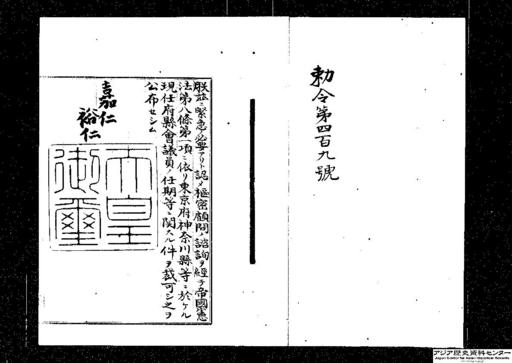 勅令第四百九號
朕玆ニ緊急ノ必要アリト認メ樞密顧問ノ諮詢ヲ經テ帝國憲
法第八條第一項ニ依リ東京府神奈川縣等ニ於ケル
現任府縣會議員ノ任期等ニ關スル件ヲ裁可シ之ヲ
公布セシム
嘉仁
裕仁
天皇
御璽
アジア歴史資料センター
Japan Center for Asian Historical Records